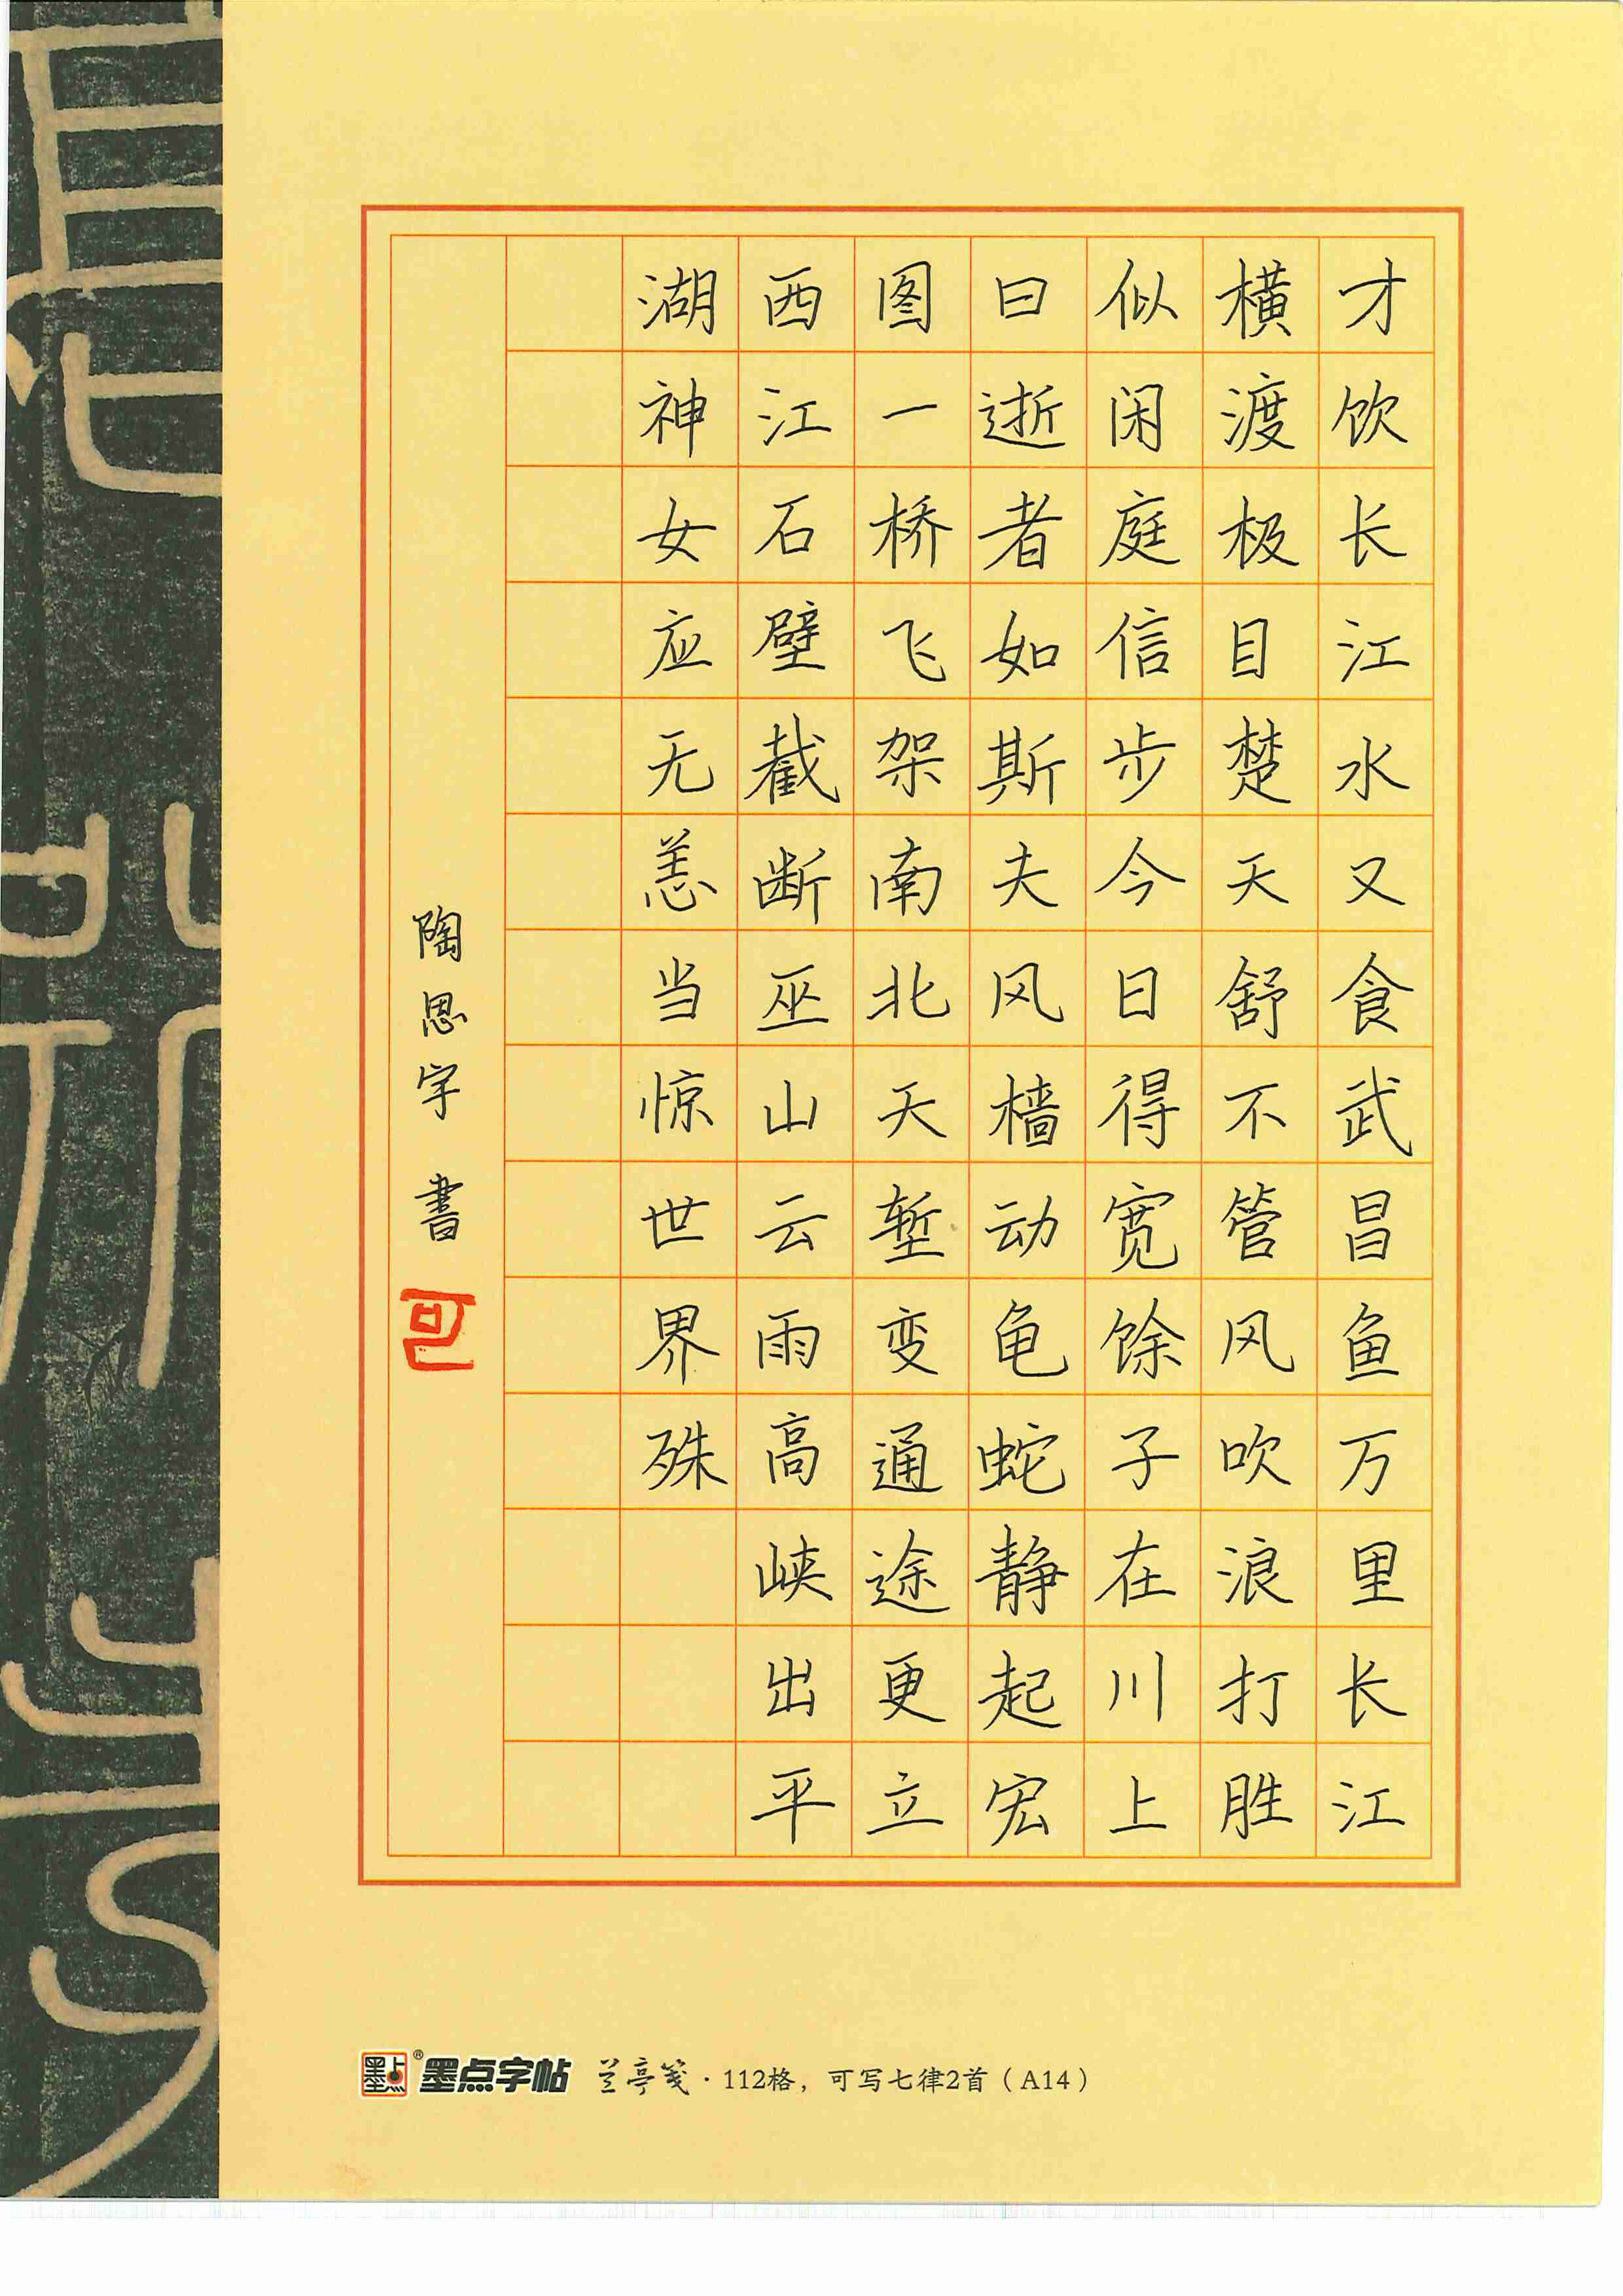 才饮长江水又食武昌鱼万里长江
横渡极目楚天舒不管风吹浪打胜
似闲庭信步今日得宽馀子在川上
曰逝者如斯夫风樯动龟蛇静起宏
图一桥飞架南北天堑变通途更立
西江石壁截断巫山云雨高峡出平
湖神女应无恙当惊世界殊
陶思宇 書
墨点字帖 兰亭笺·112格，可写七律2首（A14）